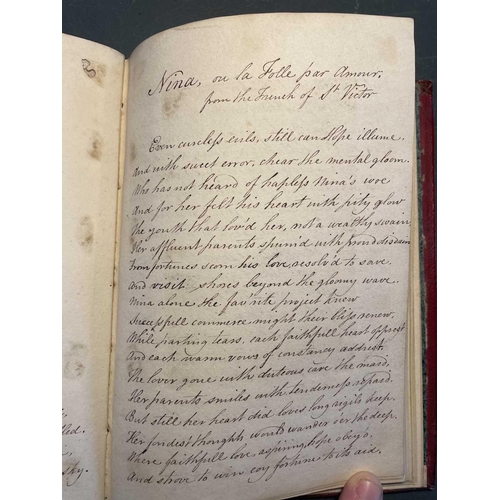 3
Nina, ou la Folle par Amour,
from the French of St Victor
Even cureless evils, still can Hope illume.
And with sweet error, chear the mental gloom.
Who has not heard of hapless Nina's woe
And for her felt his heart with pity glow
The youth that lov'd her, not a wealthy swain,
Her affluent parents spurn'd with proud disdain
From fortunes scorn his love, resolv'd to save
And visit shores beyond the gloomy wave.
Nina alone the fav'rite project knew
Successfull commerce might their bliss renew.
While parting tears, each faithfull heart opprest
And each warm vows of constancy addrest.
The lover gone with duteous care the maid,
Her parents smiles with tenderness repaid.
But still her heart did loves long vigils keep
Her fondest thoughts would wander o'er the deep,
Where faithfull love aspiring hope obey'd,
And strove to win coy fortune to its aid.
lled
sky.